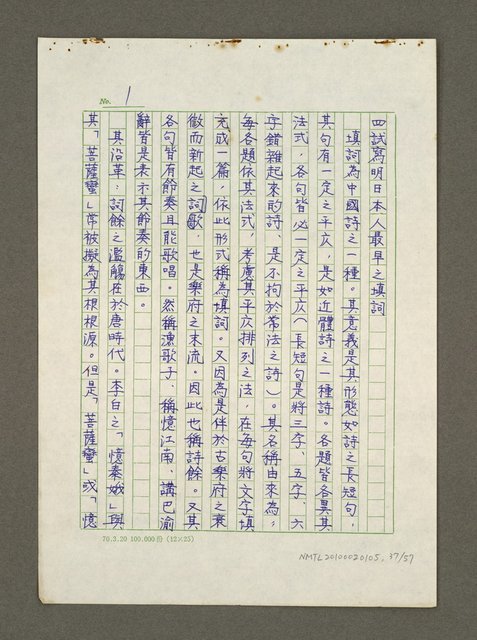 No. 1
四試寫明日本人最早之填詞
填詞為中國詩之一種。其意義是其形態如詩之長短句，
其句有一定之平仄，是如近體詩之一種詩。各題皆各異其
法式，各句皆必一定之平仄（長短句是將三字、五字、六
字錯雜起來的詩、是不拘於常法之詩）。其名稱由來為，
每各題依其法式，考慮其平仄排列之法，在每句將文字填
充成一篇，依此形式稱為填詞。又因為是伴於古樂府之衰
微而新起之詞歌，也是樂府之末流。因此也稱詩餘。又其
各句皆有節奏且能歌唱。然稱漁歌子、稱憶江南、講巴渝
辭皆是表示其節奏的東西。
其沿革：詞餘之濫觴在於唐時代。李白之「憶秦娥」與
其「菩薩蠻」常被擬為其根根源。但是「菩薩蠻」或「憶
70.3.20 100.000份 (12×25)
NMTL20100020105, 37/57